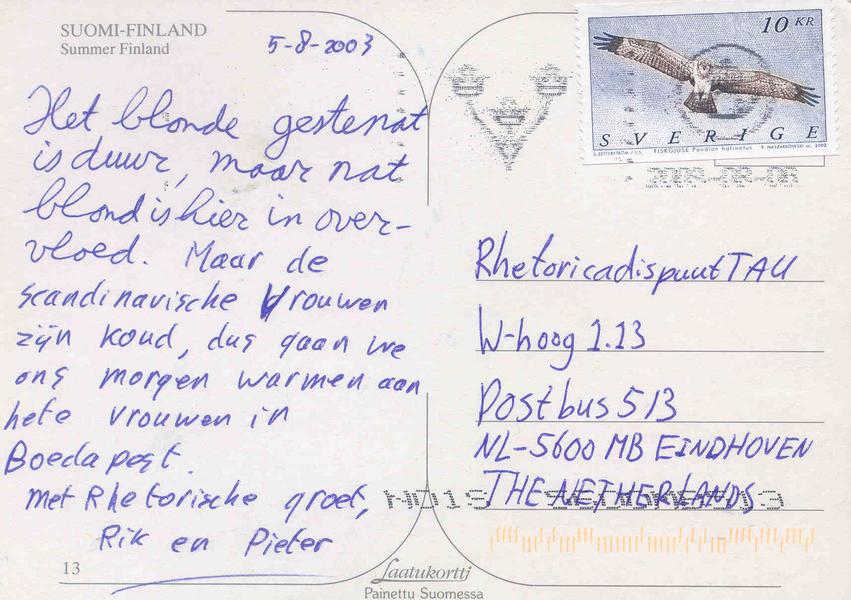 SUOMI-FINLAND
Summer Finland
5-8-2003
Het blonde gestenat
is duur, maar nat
blond is hier in over-
vloed. Maar de
scandinavische Vrouwen
zijn koud, dus gaan we
ons morgen warmen aan
hete vrouwen in
Boedapest.
Met Rhetorische groet,
Rik en Pieter
13
Laatukortti
Painettu Suomessa
10 KR
SVERIGE
FISKGJUSE Pandion haliaetus
Rhetoricadispuut TAU
W-hoog 1.13
Postbus 513
NL-5600 MB EINDHOVEN
THE NETHERLANDS